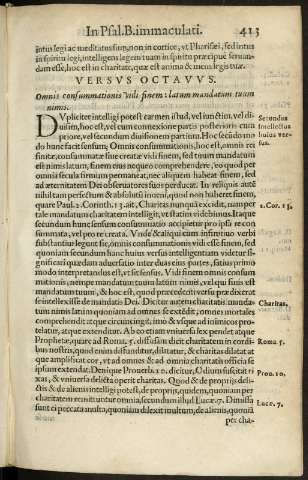 In Psal. B. immaculati. 413
intus legi ac meditatus sum, non in cortice, vt Pharisæi, sed intus
in spiritu legi, intelligens legem tuam in spiritu præcipuè seruan-
dam esse, hoc est in charitate, quæ est anima & mens legis tuæ.
VERSVS OCTAVVS.
Omnis consummationis vidi finem: latum mandatum tuum
nimis.
DVpliciter intelligi potest carmen istud, vel iunctim, vel di-
uisim, hoc est, vel cum connectione partis posterioris cum
priore, vel secundum diuisionem partium. Hoc secundo mo-
do hunc facit sensum; Omnis consummationis, hoc est, omnis rei
finitæ, consummatæ siue creatæ vidi finem, sed tuum mandatum
est nimis latum, finem eius nequeo comprehendere, vt quod per
omnia secula firmum permaneat, nec aliquem habeat finem, sed
ad æternitatem Dei obseruatores suos perducat. In reliquis autē
nihil tam perfectum & absolutum vidi, quod non haberet finem,
quare Paul. 1. Corinth. 13. ait, Charitas nunquā excidit, nam per
tale mandatum charitatem intelligit, vt statim videbimus. Itaque
secundum hunc sensum consummatio accipitur pro ipsa re con
summata, vel pro re creata. Vnde & aliqui cum infinitiuo verbi
substantiui legunt sic, omnis consummationis vidi esse finem, sed
quoniam secundum hunc huius versus intellectum videtur si-
gnificari quædam aduersatio inter duas eius partes, satius primo
modo interpretandus est, vt sit sensus. Vidi finem omnis consum
mationis, nempe mandatum tuum latum nimis, cuius finis est
mandatum tuum, & hoc est, quod præcedenti versu pr dixerat
se intellexisse de mandatis Dei. Dicitur autem charitatis manda-
tum nimis latum quoniam ad omnes se extēdit, omnes mortales
comprehendit atque circumcingit, imo & vsque ad inimicos pro-
telatur, atque extenditur. Ab hoc etiam vniuersa lex pendet atque
Prophetæ, quare ad Rom. 5. diffusam dicit charitatem in cordi-
bus nostris, quod enim diffunditur, dilatatur, & charitas dilatat at
que amplificat cor, vt ad omnes & ad omnia charitatis officia se
ipsum extendat. Denique Prouerb. 10. dicitur, Odium suscitat ri
xas, & vniuersa delicta operit charitas. Quod & de propriis deli-
ctis & de alienis intelligi potest, de propriis, quidem, quoniam per
charitatem remittuntur omnia, secundum illud Lucæ. 7. Dimissa
sunt ei peccata multa, quoniam dilexit multum, de alienis, quoniā
per cha-
Secundus
intellectus
huius ver-
sus.
1. Cor. 13.
Charitas.
Roma. 5.
Pro. 10.
Luce. 7.